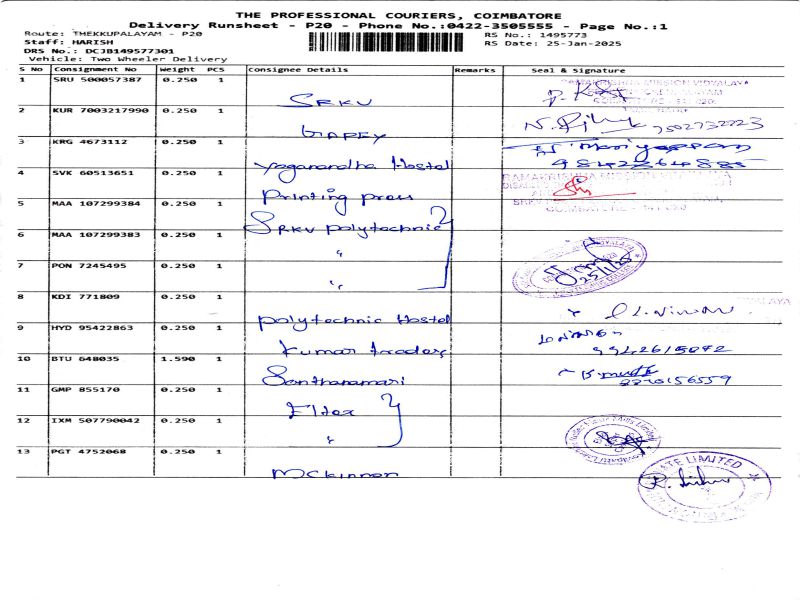 THE PROFESSIONAL COURIERS, COIMBATORE
Delivery Runsheet - P20 - Phone No.:0422-3505555 - Page No.:1
Route: THEKKUPALAYAM - P20
RS No.: 1495773
Staff: HARISH
RS Date: 25-Jan-2025
DRS No.: DCJB149577301
Vehicle: Two Wheeler Delivery
S No Consignment No Weight PCS Consignee Details Remarks Seal & Signature
1 SRU 500057387 0.250 1 SRKV
2 KUR 7003217990 0.250 1
3 KRG 4673112 0.250 1 Yoganandha Hostel
4 SVK 60513651 0.250 1 Printing press
5 MAA 107299384 0.250 1 SRKV polytechnic
6 MAA 107299383 0.250 1 "
7 PON 7245495 0.250 1 "
8 KDI 771809 0.250 1 polytechnic Hostel
9 HYD 95422863 0.250 1 Kumar traders
10 BTU 648035 1.590 1 Santhanamari
11 GMP 855170 0.250 1 Eltex
12 IXM 507790042 0.250 1 "
13 PGT 4752068 0.250 1 Mckinnon